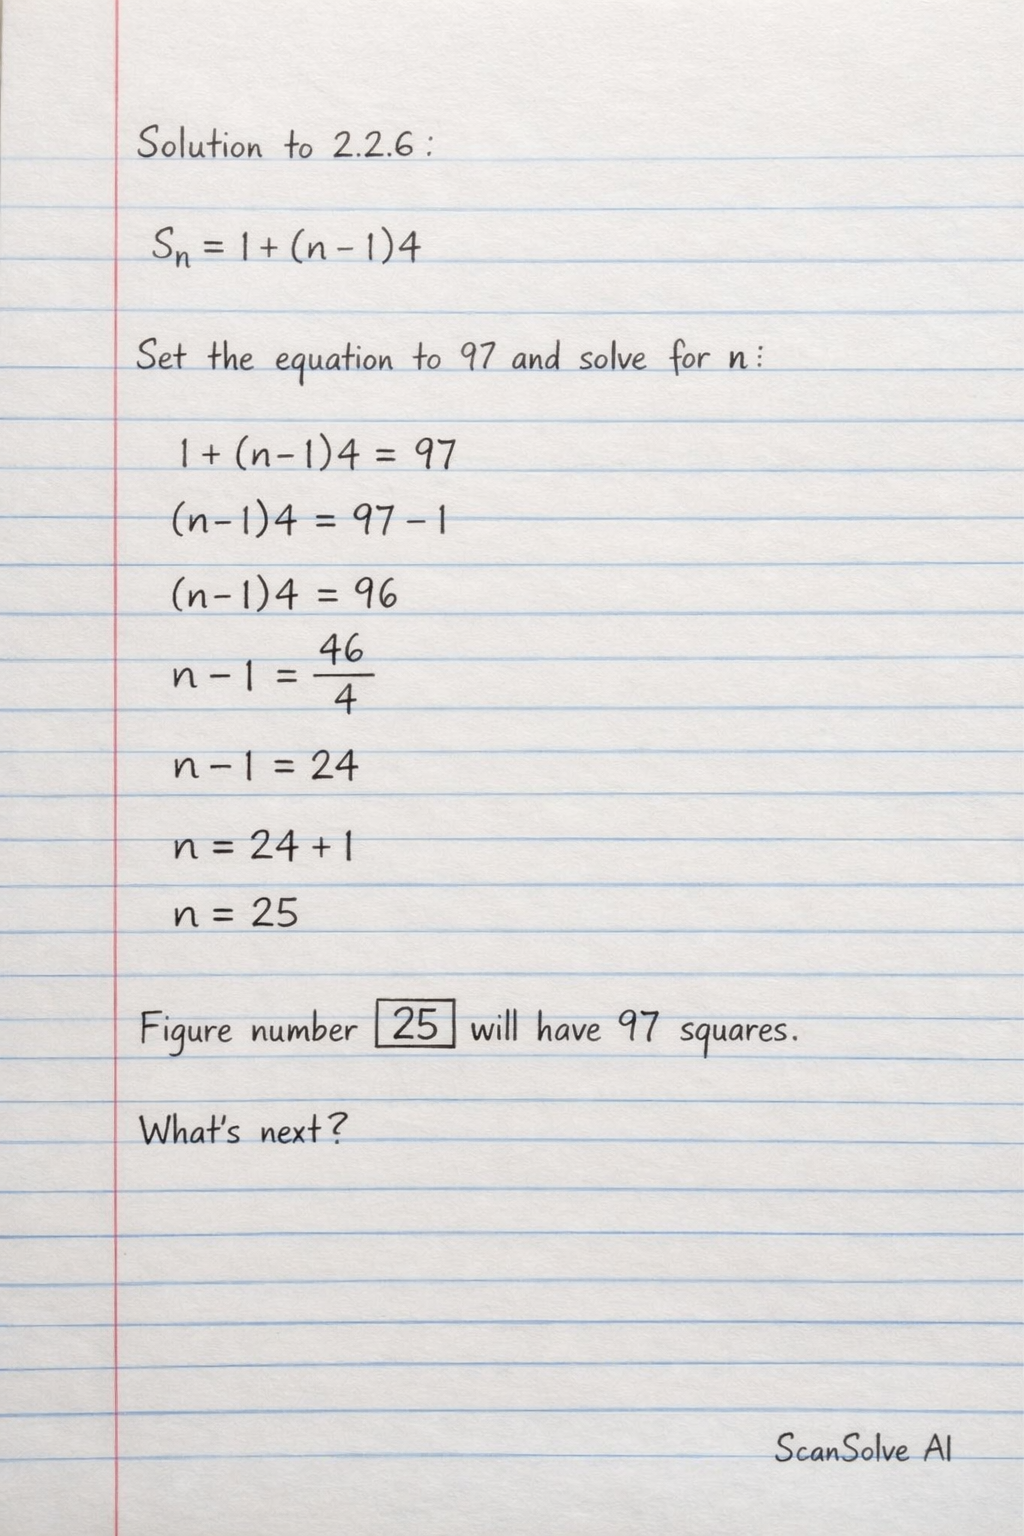 Solution to 2.2.6:
Sn = 1 + (n - 1)4
Set the equation to 97 and solve for n:
1 + (n-1)4 = 97
(n-1)4 = 97 - 1
(n-1)4 = 96
n - 1 = 46/4
n - 1 = 24
n = 24 + 1
n = 25
Figure number 25 will have 97 squares.
What's next?
ScanSolve AI